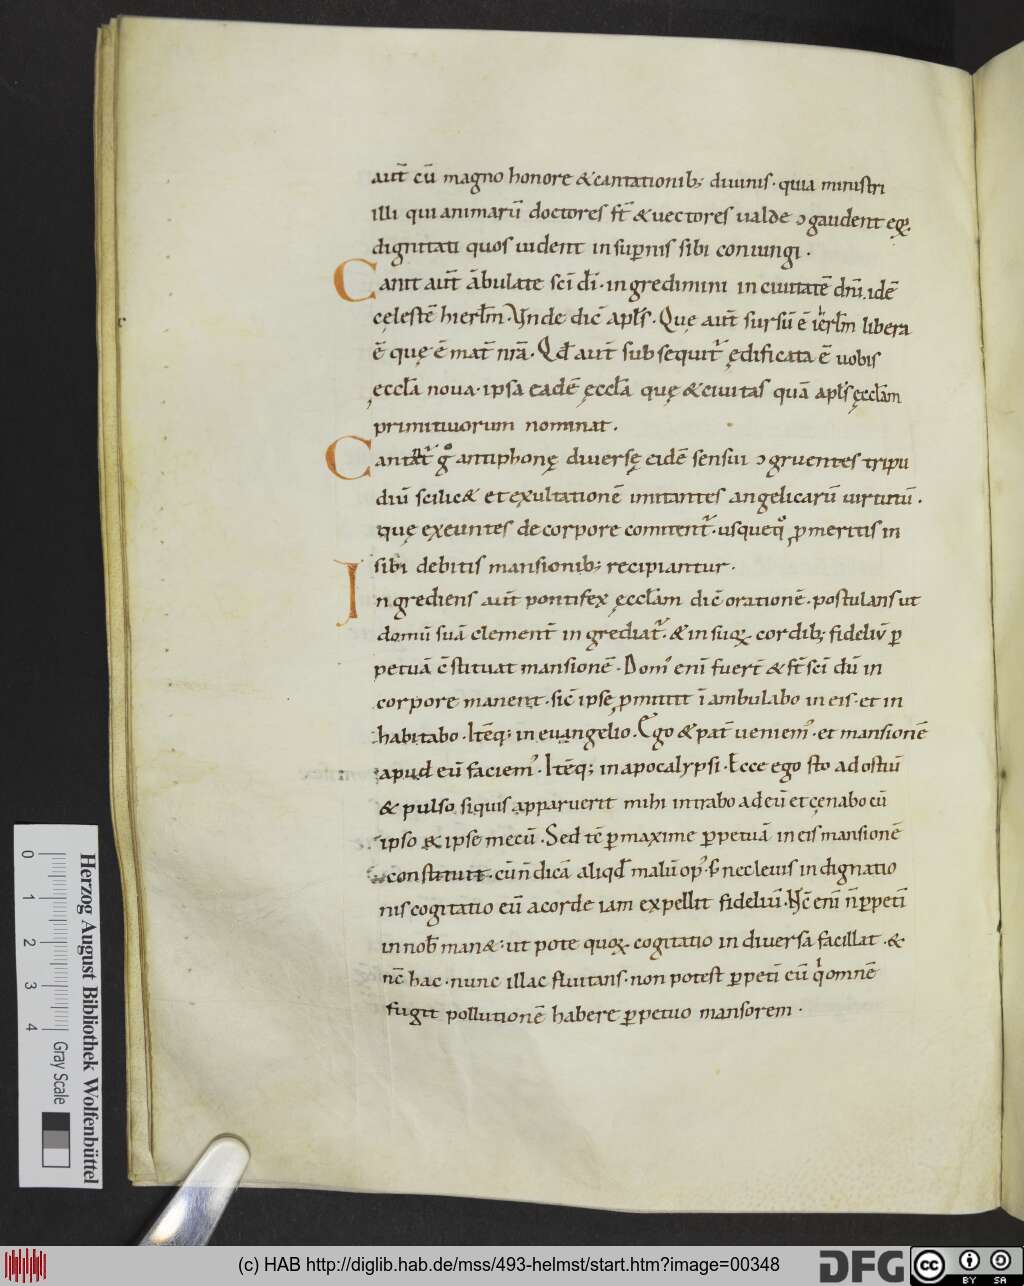 aut̄ cū magno honore &cantationib; diuinis· quia ministri
illi qui animarū doctores st̄ & uectores ualde ↄgaudent eoꝝ
dignitati quos uident insuꝑnis sibi coniungi·
Canit aut̄ ābulate sc̄i dī· ingredimini in ciuitatē dn̄i. idē
cęlestē hierłm. Vnde dic̄ apłs. Quę aut̄ sursū ē ierłm libera
ē quę ē mat̄ nr̄a. Qd̄ aut̄ subsequit᷑ ędificata ē uobis
ęccła noua· ipsa eadē ęccła quę &ciuitas quā apłs ęccłam
primitiuorum nominat.
Cantant᷑ gͦ antiphonę diuersę eidē sensui ↄgruentes tripu
diū scilic& et exultationē imitantes angelicarū uirtutū.
quę exeuntes de corpore comitent᷑· usqueqͦ ꝓmeritis in
sibi debitis mansionib; recipiantur.
Ingrediens aut̄ pontifex ęccłam dic̄ orationē· postulans ut
domū suā clement̄ ingrediat᷑· & in suoꝝ cordib; fideliū ꝑ
petuā c̄stituat mansionē. Domꝰ eni fuer̄ & st̄ sc̄i dū in
corpore manent· sic̄ ipse ꝓmittit īambulabo in eis· et in
habitabo. Itēq; in euangelio. Ego & pat̄ ueniemꝰ· et mansionē
apud eū faciemꝰ. Itēq; in apocalypsi· Ecce ego sto ad ostiū
& pulso siquis apparuerit mihi intrabo ad eū et cęnabo cū
ipso & ipse mecū. Sed tc̄ ꝑmaxime ꝑpetuā in eis mansionē
constituit· cū n̄ dicā aliqd̄ malū opꝰ· s; nec leuis indignatio
nis cogitatio eū acorde iam expellit fideliū. Nc̄ eni n̄ ꝑpeti
in nob̄ man&· ut pote quoꝝ cogitatio in diuersa facillat· &
nc̄ hac· nunc illac fluitans· non potest ꝑpeti eū qͥ omnē
fugit pollutionē habere ꝑpetuo mansorem·
0 1 2 3 4
Gray Scale
Herzog August Bibliothek Wolfenbüttel
(c) HAB http://diglib.hab.de/mss/493-helmst/start.htm?image=00348
DFG
cc BY SA